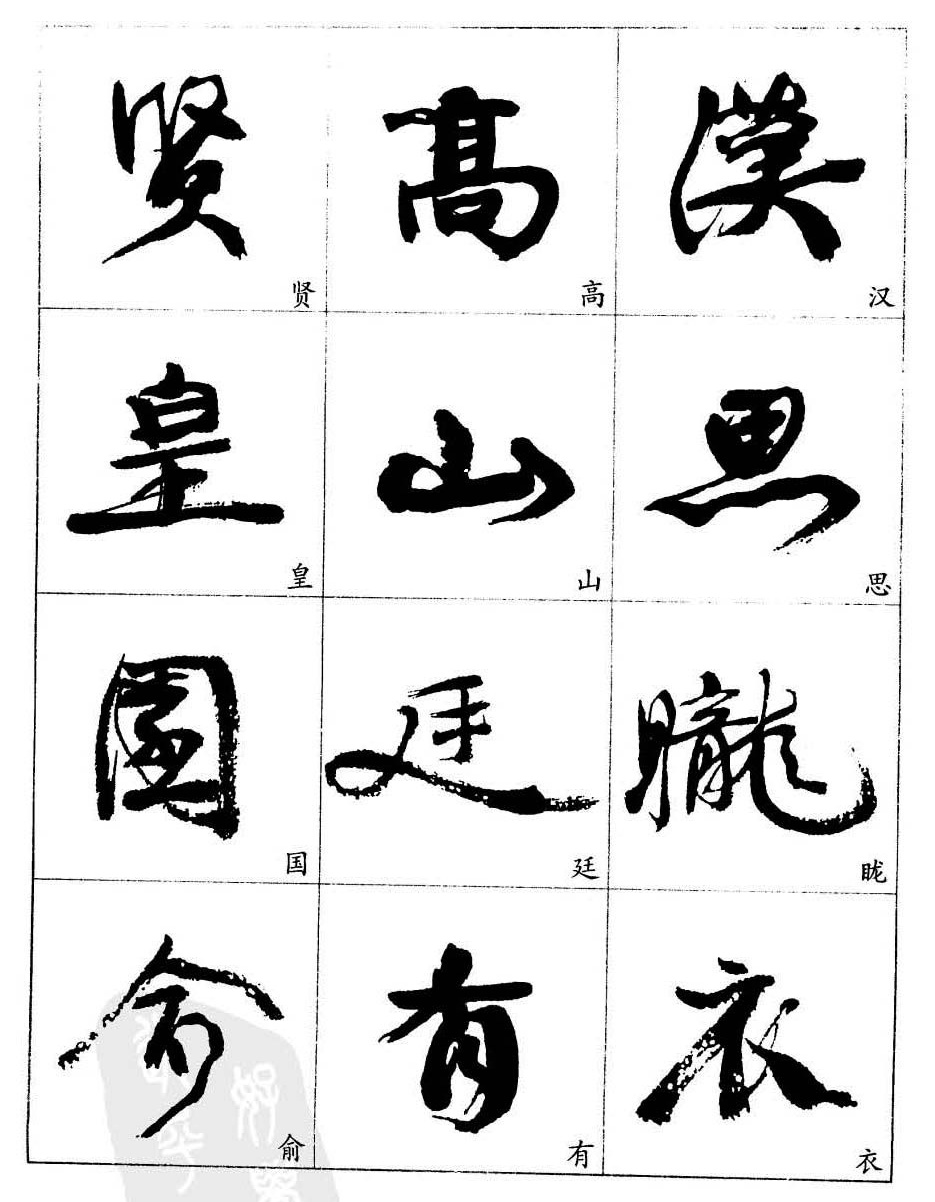 贤 高 漢
贤 高 汉
皇 山 思
皇 山 思
國 廷 矓
国 廷 眬
俞 有 衣
俞 有 衣